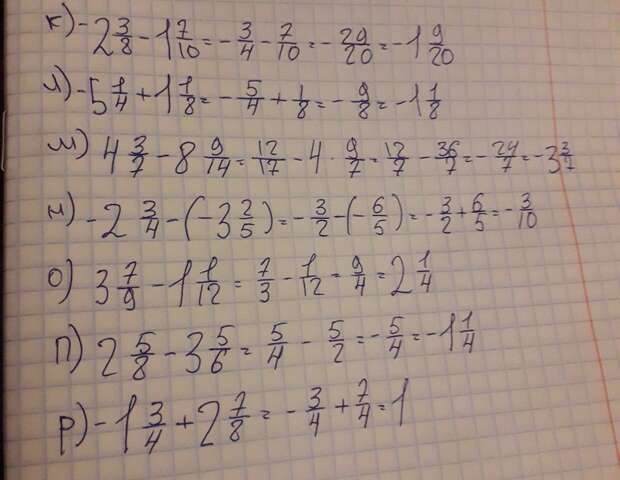 к) -2 3/8 - 1 7/10 = -3/4 - 7/10 = -29/20 = -1 9/20
л) -5 1/4 + 1 1/8 = -5/4 + 1/8 = -9/8 = -1 1/8
м) 4 3/7 - 8 9/14 = 12/17 - 4 · 9/7 = 12/7 - 36/7 = -24/7 = -3 3/7
н) -2 3/4 - (-3 2/5) = -3/2 - (-6/5) = -3/2 + 6/5 = -3/10
о) 3 7/9 - 1 1/12 = 7/3 - 1/12 = 9/4 = 2 1/4
п) 2 5/8 - 3 5/6 = 5/4 - 5/2 = -5/4 = -1 1/4
р) -1 3/4 + 2 7/8 = -3/4 + 7/4 = 1